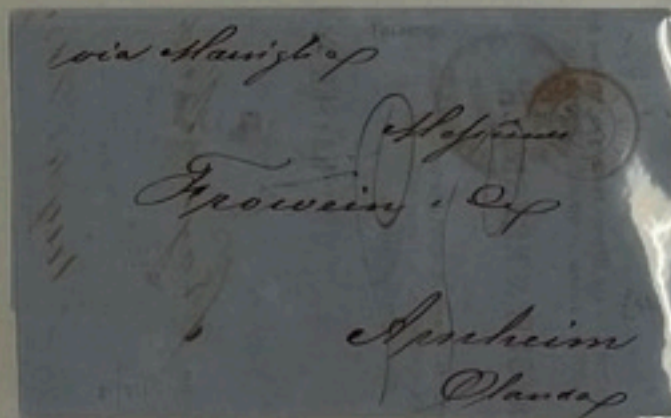 via Marsiglia
Messieurs
Frowein & Co
Arnheim
Olanda